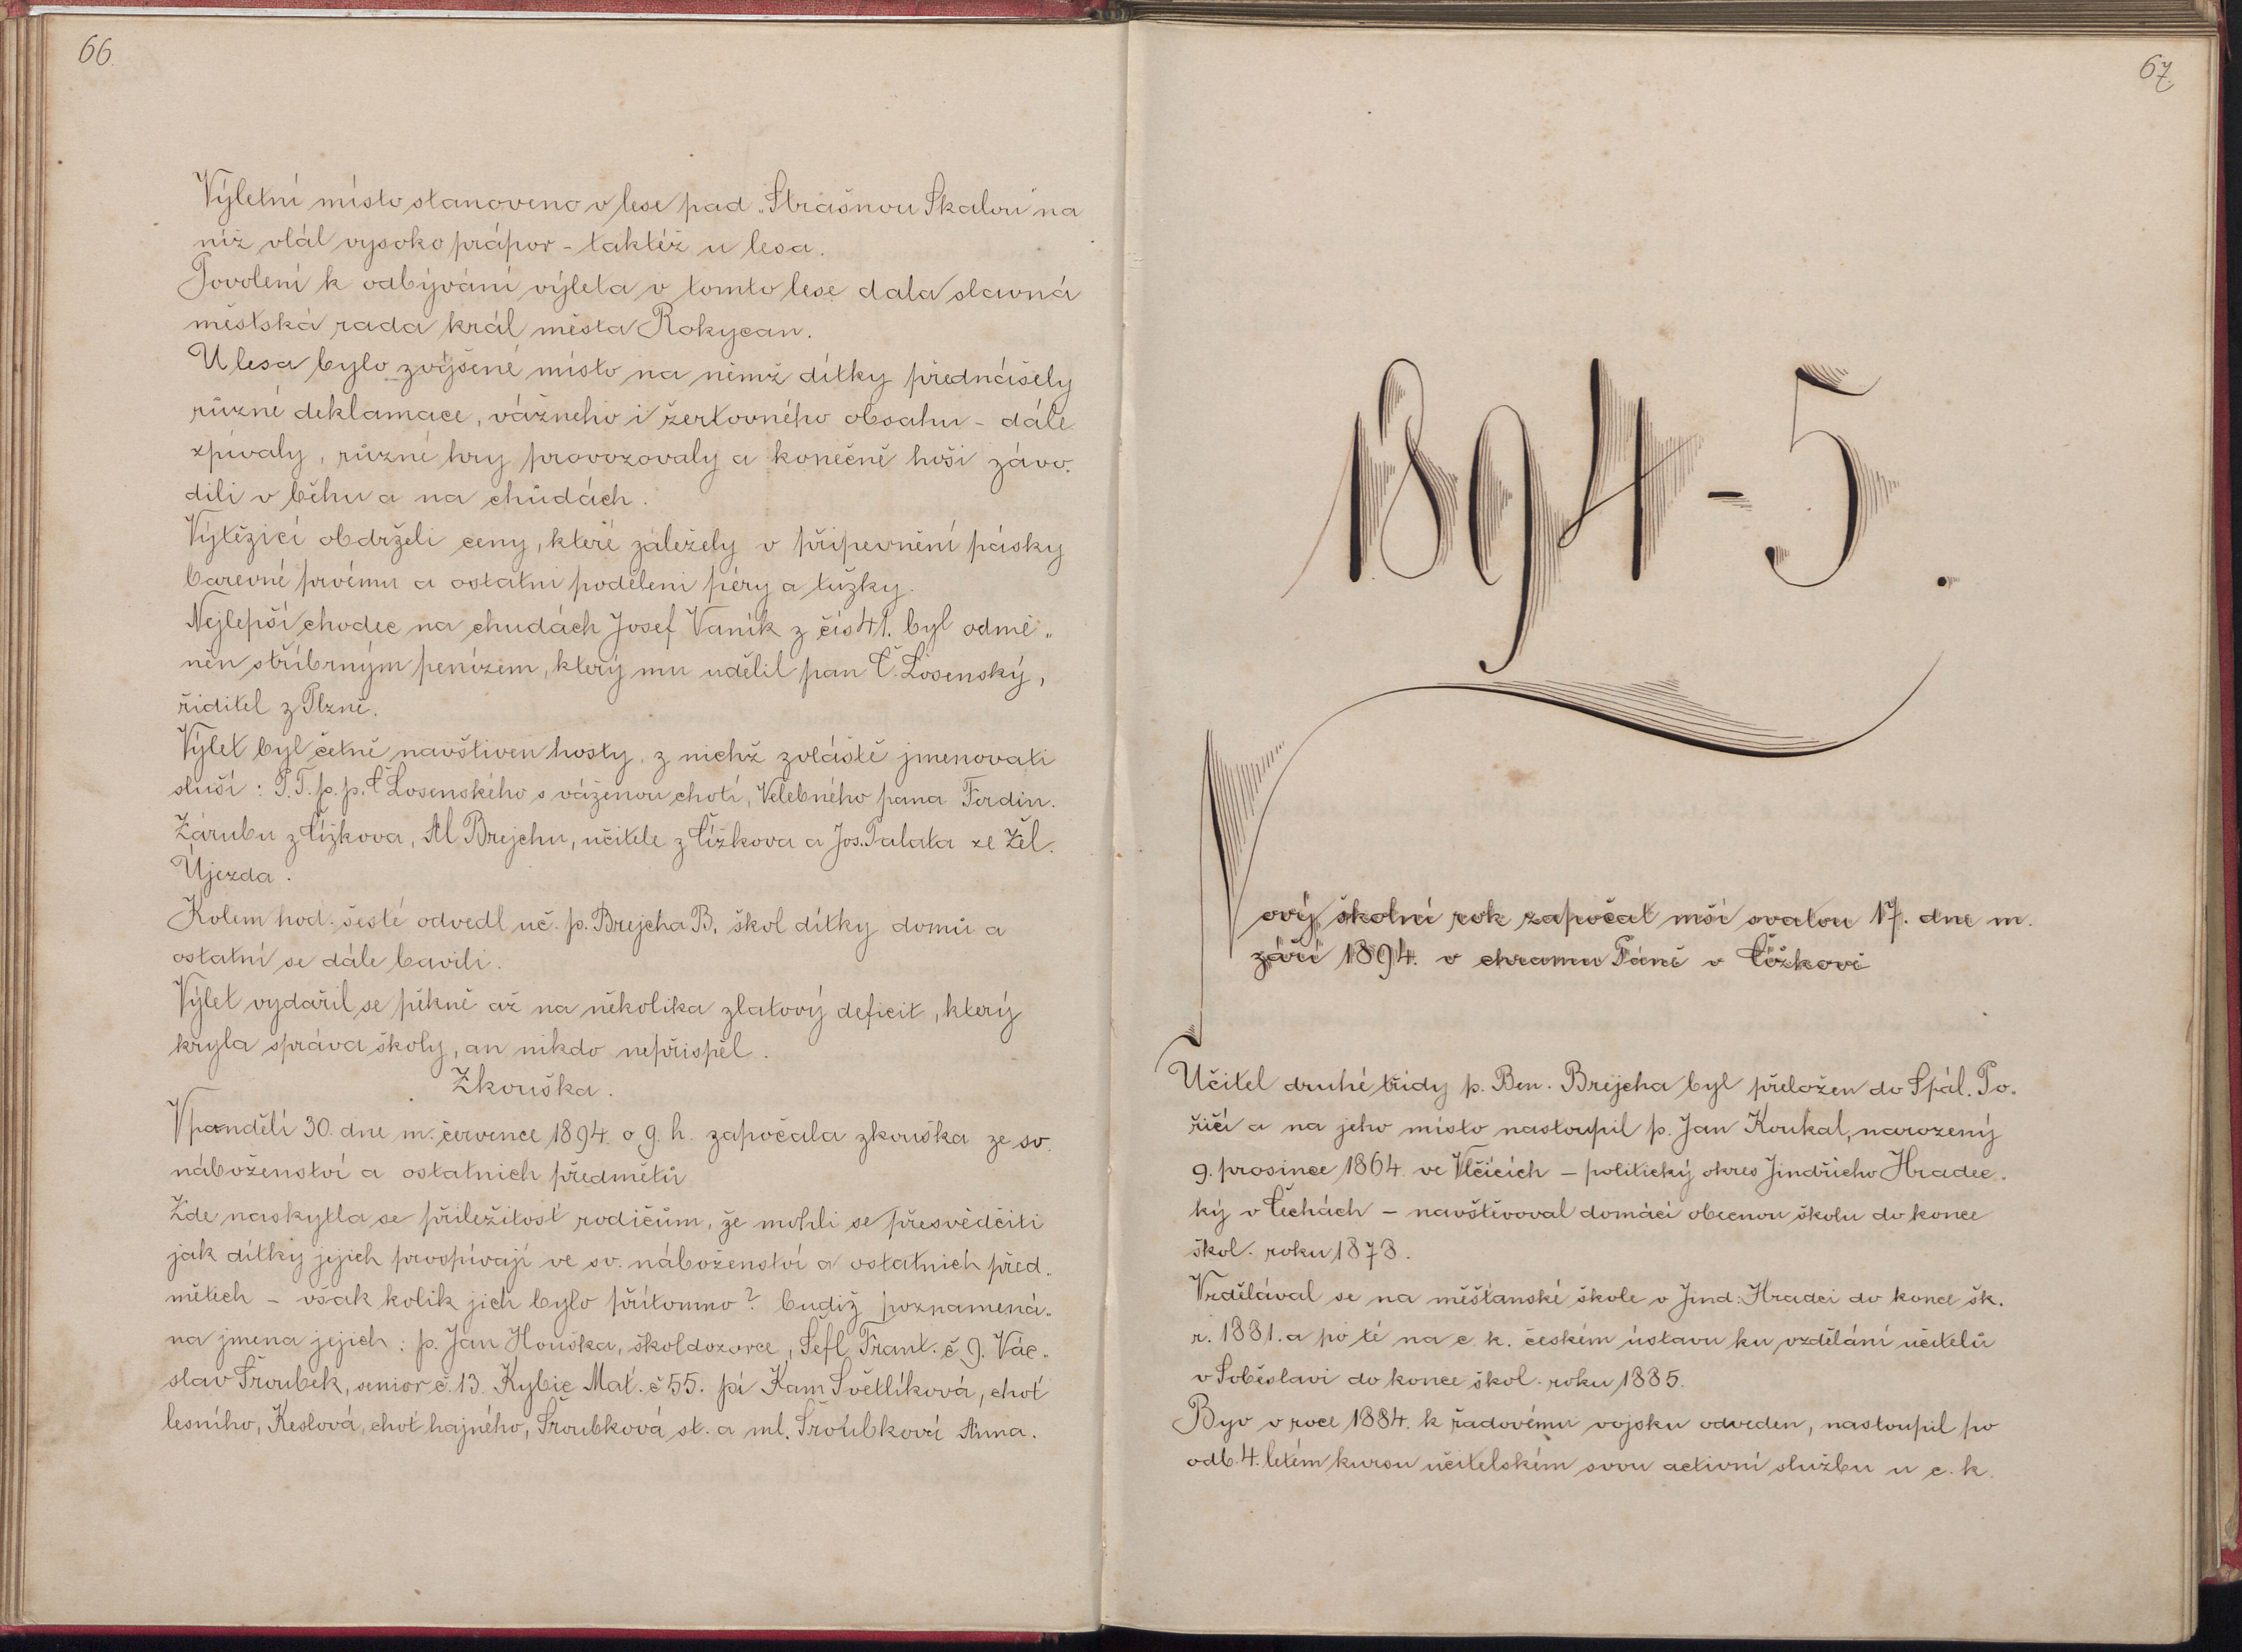 66.
Výletní místo stanoveno v lese pod „Strašnou Skalou" na
níž vlál vysoko prápor - taktéž u lesa.
Povolení k odbývání výleta v tomto lese dala slavná
městská rada král města Rokycan.
U lesa bylo zvýšené místo na němž dítky přednášely
různé deklamace, vážného i žertovného obsahu - dále
zpívaly, různé hry provozovaly a konečně hoši závo-
dili v běhu a na chůdách.
Výtězící obdrželi ceny, které záležely v připevnění pásky
barevné prvému a ostatní poděleni péry a tužky.
Nejlepší chodec na chudách Josef Vaník z čís 41. byl odmě„
něn stříbrným penízem, který mu udělil pan Č. Losenský,
řiditel z Plzně.
Výlet byl četně navštíven hosty, z nichž zvláště jmenovati
sluší: P.T. p. p. Č Losenského s váženou chotí, Velebného pana Ferdin.
Zárubu z Čížkova, Al Brejchu, učitele z Čížkova a Jos. Palata ze Žel.
Újezda.
Kolem hod. šesté odvedl uč. p. Brejcha B. škol dítky domů a
ostatní se dále bavili.
Výlet vydařil se pěkně až na několika zlatový deficit, který
kryla správa školy, an nikdo nepřispěl.
Zkouška.
V pondělí 30. dne m. července 1894. o 9. h. započala zkouška ze sv.
náboženství a ostatních předmětů
Zde naskytla se příležitosť rodičům, že mohli se přesvědčiti
jak dítky jejich prospívají ve sv. náboženství a ostatních před„
mětech - však kolik jich bylo přítomno? budiž poznamená„
na jmena jejich: p. Jan Houška, škol dozorce, Šefl Frant. č 9. Vác„
slav Šroubek, senior č. 13. Kybic Mat. č 55. pí Kam Světlíková, choť
lesního, Keslová, choť hajného, Šroubková st. a ml. Šroubková Anna.
67.
1894-5.
Nový školní rok započat mší svatou 17. dne m.
září 1894. v chramu Páně v Čížkově
Učitel druhé třídy p. Ben. Brejcha byl přeložen do Spál. Po-
říčí a na jeho místo nastoupil p. Jan Koukal, narozený
9. prosince 1864. ve Vlčicích - politický okres Jindřicho Hradec-
ký v Čechách - navštěvoval domácí obecnou školu do konce
škol. roku 1878.
Vzdělával se na měšťanské škole v Jind: Hradci do konce šk.
r. 1881. a po té na c. k. českém ústavu ku vzdělání učitelů
v Soběslavi do konce škol. roku 1885.
Byv v roce 1884. k řadovému vojsku odveden, nastoupil po
odb. 4. letém kursu učitelském svou activní službu u c. k.